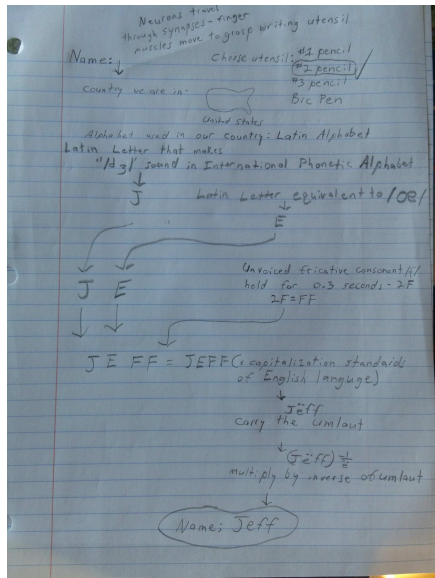 Neurons travel
through synapses - finger
muscles move to grasp writing utensil
Name:
Choose utensil: #1 pencil
#2 pencil
#3 pencil
Bic Pen
Country we are in:
United States
Alphabet used in our country: Latin Alphabet
Latin Letter that makes
"/dʒ/" sound in International Phonetic Alphabet
J
Latin Letter equivalent to /oe/
E
J E
Unvoiced fricative consonant
hold for 0.3 seconds - 2F
2F = FF
J E FF = JEFF (x capitalization standards
of English languge)
Jëff
Carry the umlaut
(Jëff)
multiply by inverse of umlaut
Name; Jeff